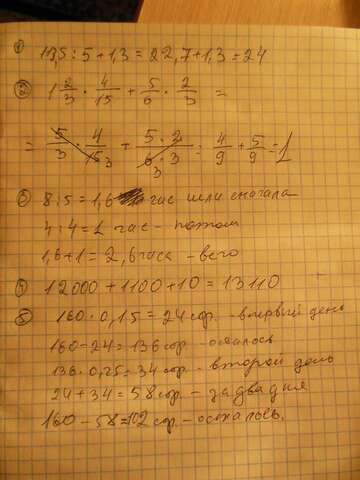 ① 113,5 : 5 + 1,3 = 22,7 + 1,3 = 24
② 1 2/3 · 4/15 + 5/6 · 2/3 =
= 5/3 · 4/15 3 + 5 · 2/6 · 3 3 = 4/9 + 5/9 = 1
③ 8 : 5 = 1,6 час шли сначала
4 : 4 = 1 час - потом
1,6 + 1 = 2,6 часа - всего
④ 12000 + 1100 + 10 = 13110
⑤ 160 · 0,15 = 24 стр. - в первый день
160 - 24 = 136 стр. - осталось
136 · 0,25 = 34 стр. - второй день
24 + 34 = 58 стр. - за два дня
160 - 58 = 102 стр - осталось.